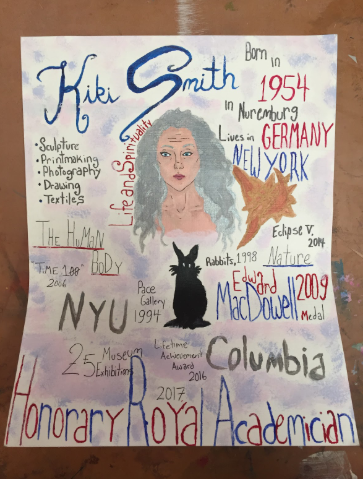 Kiki Smith
Born in
1954
in
Nuremburg
GERMANY
Lives in
NEW YORK
• Sculpture
• Printmaking
• Photography
• Drawing
• Textiles
Life and Spirituality
THE HUMAN
BODY
Eclipse V,
2014
Nature
Rabbits, 1998
TIME 100
2006
Edward
MacDowell
2009
Medal
NYU
Pace
Gallery
1994
25 Museum
Exhibitions
Lifetime
Achievement
Award
2016
Columbia
2017
Honorary Royal Academician